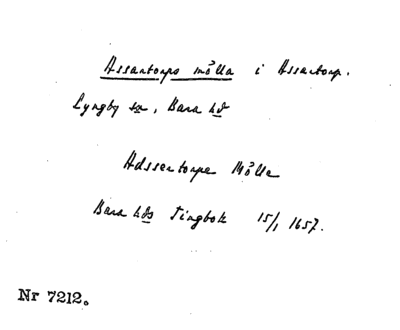 Assartorps mölla i Assartorp.
Lyngby sn, Bara hd
Adssertorpe Mölle
Bara hds Tingbok 15/1 1657.
Nr 7212.